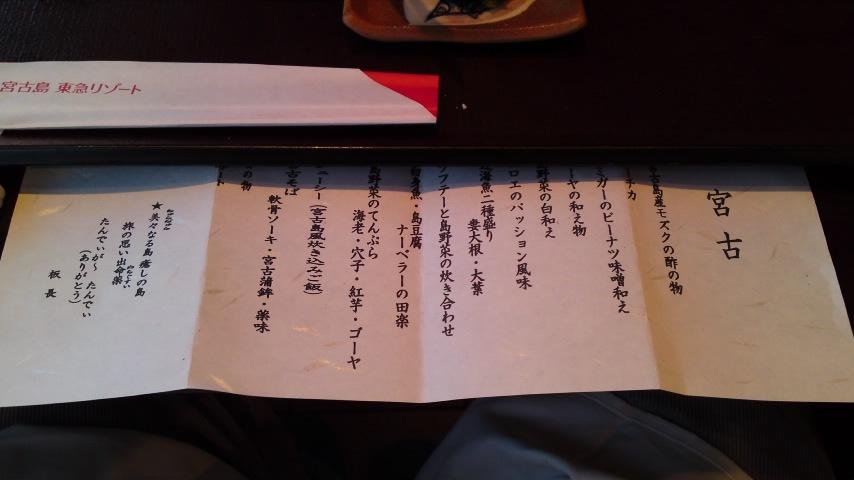 宮古島 東急リゾート
宮古
古島産モズクの酢の物
ーチカ
ミガーのピーナツ味噌和え
ーヤの和え物
島野菜の白和え
ロエのパッション風味
近海魚二種盛り
妻大根・大葉
ソフテーと島野菜の炊き合わせ
白身魚・島豆腐
ナーベラーの田楽
島野菜のてんぷら
海老・穴子・紅芋・ゴーヤ
ューシー(宮古島風炊き込みご飯)
古そば
軟骨ソーキ・宮古蒲鉾・薬味
の物
ート
★ 美々なる島 癒しの島
旅の思い出 命薬
たんでぃが~ たんでぃ
(ありがとう)
板長